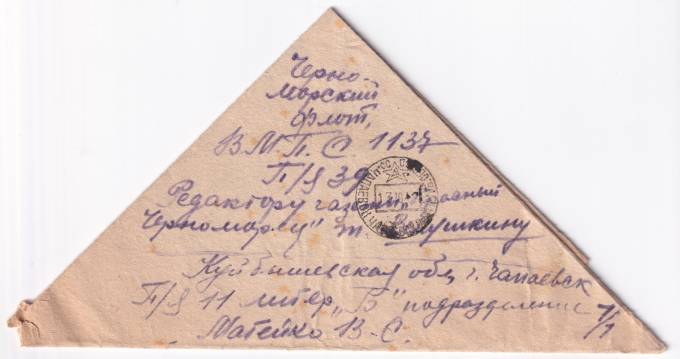 Черно-
морский
флот,
В.М.П.С 1137
П/я 39
Редактору газеты "Красный
Черноморец" т.
Куйбышевская обл. г. Чапаевск
П/я 11 литер "Б" подразделение 1/1
Матейко В. С.